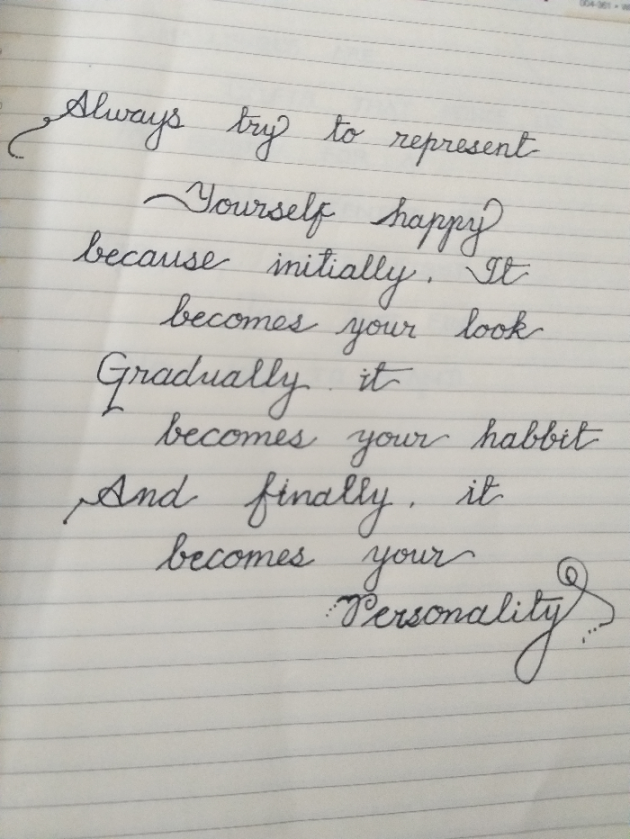 Always try to represent
Yourself happy
because initially. It
becomes your look
Gradually it
becomes your habbit
And finally, it
becomes your
Personality